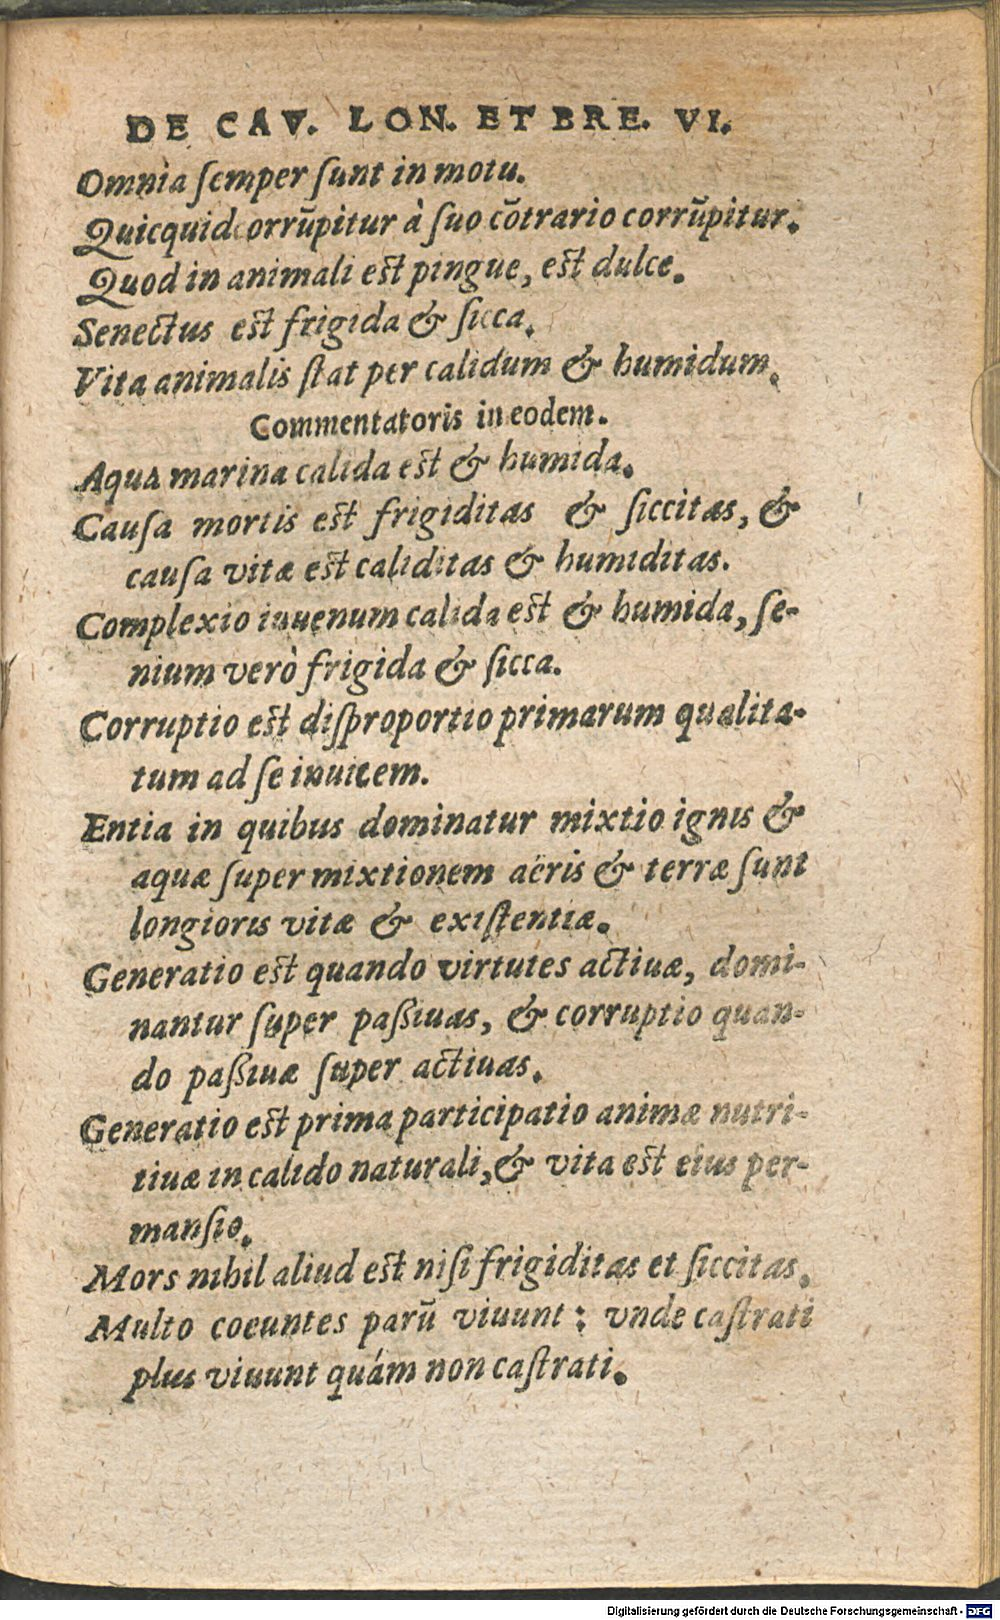 DE CAV. LON. ET BRE. VI.
Omnia semper sunt in motu.
Quicquid corrũpitur à suo cõtrario corrũpitur.
Quod in animali est pingue, est dulce.
Senectus est frigida & sicca.
Vita animalis stat per calidum & humidum.
Commentatoris in eodem.
Aqua marina calida est & humida.
Causa mortis est frigiditas & siccitas, &
causa vitæ est caliditas & humiditas.
Complexio iuuenum calida est & humida, se-
nium verò frigida & sicca.
Corruptio est disproportio primarum qualita-
tum ad se inuicem.
Entia in quibus dominatur mixtio ignis &
aquæ super mixtionem aëris & terræ sunt
longioris vitæ & existentiæ.
Generatio est quando virtutes actiuæ, domi-
nantur super paßiuas, & corruptio quan-
do paßiuæ super actiuas.
Generatio est prima participatio animæ nutri-
tiuæ in calido naturali, & vita est eius per-
mansio.
Mors nihil aliud est nisi frigiditas et siccitas.
Multo coeuntes parũ viuunt: vnde castrati
plus viuunt quám non castrati.
Digitalisierung gefördert durch die Deutsche Forschungsgemeinschaft - DFG